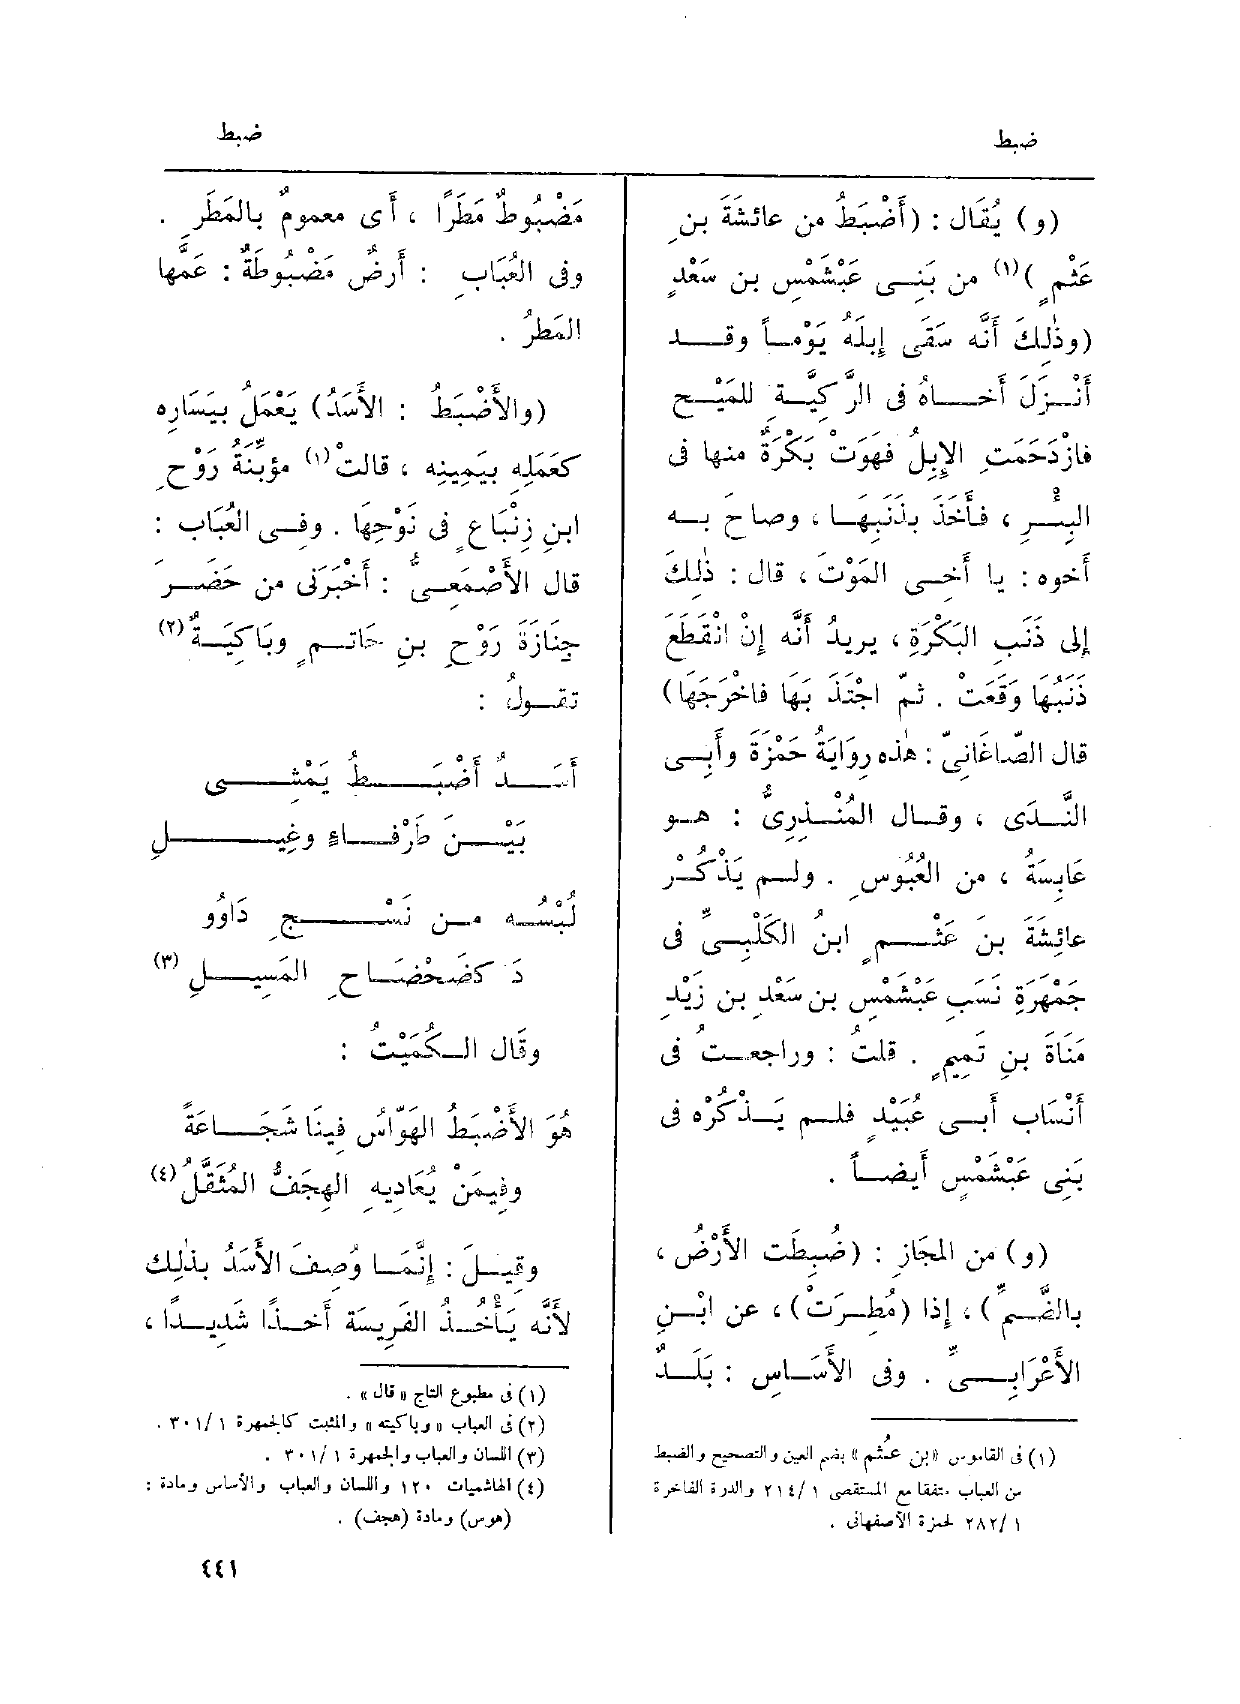 ضبط
ضبط
(و) يُقَال : (أَضْبَطُ من عائشَةَ بنِ
عَثْمٍ )(١) من بَنِى عَبْشَمْسِ بن سَعْدٍ
(وذٰلِكَ أَنَّه سَقَى إِبِلَهُ يَوْماً وقد
أَنْزَلَ أَخاهُ فى الرَّكِيَّةِ للمَيْح
فازْدَحَمَتِ الإِبِلُ فهَوَتْ بَكْرَةٌ منها فى
البِئرِ ، فأَخَذَ بذَنَبِهَا ، وصاحَ به
أَخوه : يا أَخِى المَوْتَ ، قال : ذٰلِكَ
إلى ذَنَبِ البَكْرَةِ ، يريدُ أَنَّه إِنْ انْقَطَعَ
ذَنَبُهَا وَقَعَتْ . ثمّ اجْتَذَ بَهَا فاخْرَجَهَا)
قال الصّاغَانِىّ : هٰذه رِوَايَةُ حَمْزَةَ وأَبِى
النَّدَى ، وقال المُنْذِرِىُّ : هو
عَابِسَةُ ، من العُبُوسِ . ولم يَذْكُرْ
عائِشَةَ بنَ عَثْمٍ ابنُ الكَلْبِىِّ فى
جَمْهَرَةِ نَسَبِ عَبْشَمْسِ بن سَعْدِ بن زَيْدِ
مَنَاةَ بنِ تَمِيمٍ . قلتُ : وراجعتُ فى
أَنْسَاب أَبى عُبَيْدٍ فلم يَذْكُرْه فى
بَنِى عَبْشَمْسٍ أَيضاً .
(و) من المجَاز : (ضُبِطَت الأَرْضُ ،
بالضَّمِّ) ، إذا (مُطِرَتْ) ، عن ابْنِ
الأَعْرَابِىِّ . وفى الأَسَاسِ : بَلَدٌ
(١) فى القاموس «بن عُثم» بضم العين والتصحيح والضبط
من العباب متفقا مع المستقصى ١ /٢١٤ والدرة الفاخرة
١ /٢٨٢ لحمزة الأصفهانى .
مَضْبُوطٌ مَطَرًا ، أَى معمومٌ بالمَطَرِ .
وفى العُبَابِ : أَرضٌ مَضْبُوطَةٌ : عَمَّها
المَطَرُ .
(والأَضْبَطُ : الأَسَدُ) يَعْمَلُ بيَسَارِه
كعَمَلِهِ بيَمِينِه ، قالتْ (١) مؤبِّنَةُ رَوْحِ
ابنِ زِنْبَاعٍ فى نَوْحِهَا . وفى العُبَاب :
قال الأَصْمَعِىُّ : أَخْبَرَنى من حَضَرَ
جِنَازَةَ رَوْحِ بنِ حَاتمٍ وبَاكِيَةٌ (٢)
تقولُ :
أَسَدٌ أَضْبَطُ يَمْشِى
بَيْنَ طَرْفَاءٍ وغِيلِ
لُبْسُه من نَسْجِ دَاوُو
دَ كضَحْضَاحِ المَسِيلِ (٣)
وقَال الكُمَيْتُ :
هُوَ الأَضْبَطُ الهَوّاسُ فِينَا شَجَاعَةً
وفِيمَنْ يُعَادِيهِ الهِجَفُّ المُثَقَّلُ (٤)
وقِيلَ : إِنَّمَا وُصِفَ الأَسَدُ بذٰلِك
لأَنَّه يَأْخُذُ الفَرِيسَة أَخْذًا شَدِيدًا ،
(١) فى مطبوع التاج «قال» .
(٢) فى العباب «وباكيته» والمثبت كالجمهرة ١ /٣٠١ .
(٣) اللسان والعباب والجمهرة ١ /٣٠١ .
(٤) الهاشميات ١٢٠ واللسان والعباب والأساس ومادة :
(هوس) ومادة (هجف) .
٤٤١